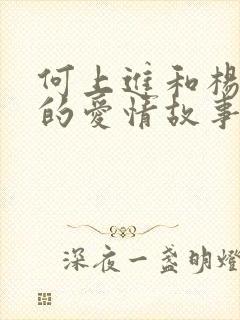 何上進和楊
的愛情故事
深夜一盏明燈